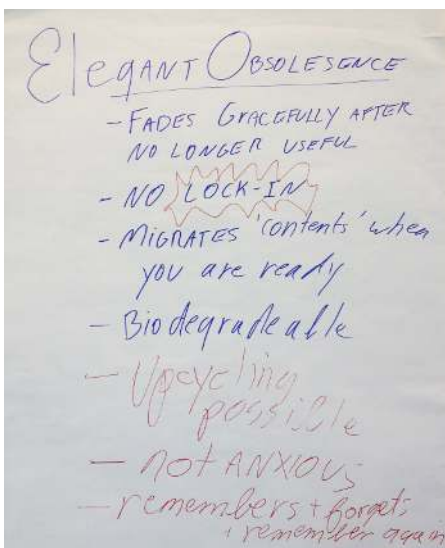 Elegant Obsolesence
- Fades Gracefully after
no longer useful
- NO LOCK-IN
- Migrates 'contents' when
you are ready
- Biodegradeable
- Upcycling
possible
- not ANXIOUS
- remembers + forgets
+ remember again